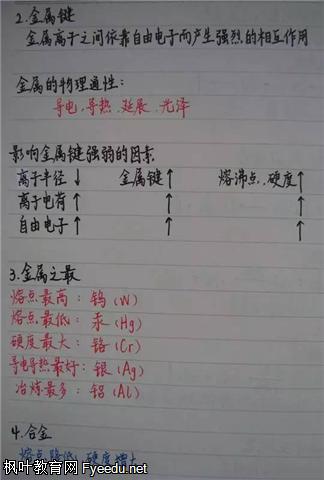 2.金属键
金属离子之间依靠自由电子而产生强烈的相互作用
金属的物理通性:
导电.导热.延展.光泽
影响金属键强弱的因素
离子半径↓ 金属键↑ 熔沸点.硬度↑
离子电荷↑ ↑ ↑
自由电子↑ ↑ ↑
3.金属之最
熔点最高:钨(W)
熔点最低:汞(Hg)
硬度最大:铬(Cr)
导电导热最好:银(Ag)
冶炼最多:铝(Al)
4.合金
熔点降低,硬度增大
枫叶教育网 Fyeedu.net